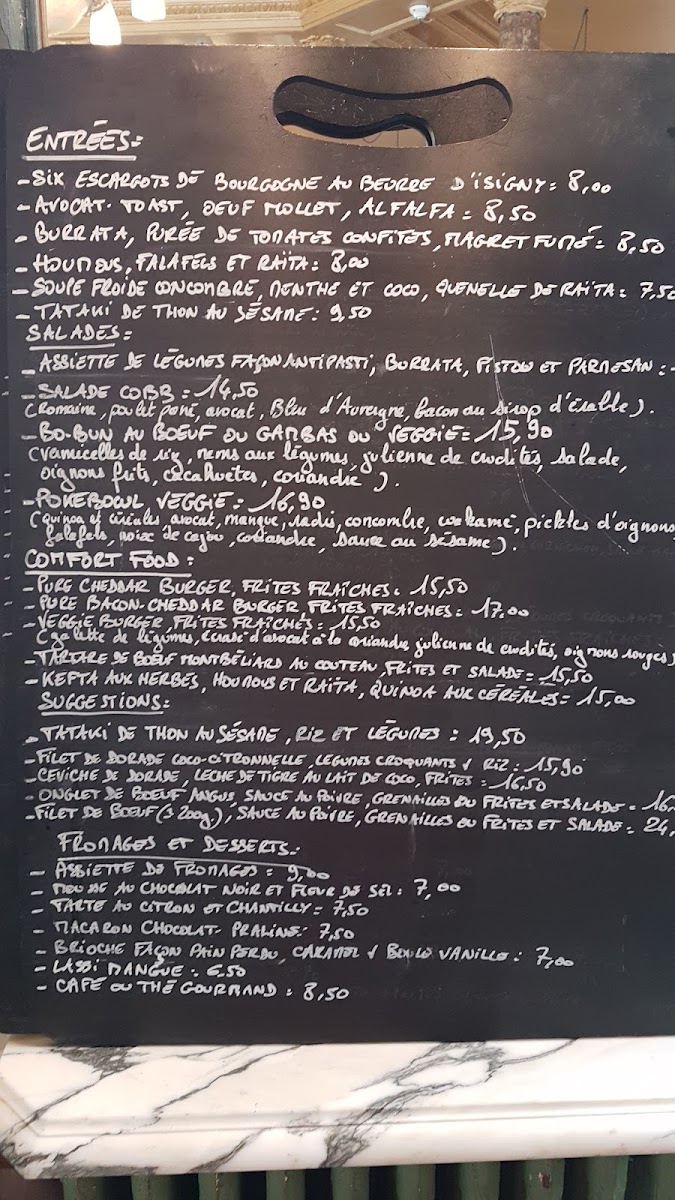 ENTRÉES:
- SIX ESCARGOTS DE BOURGOGNE AU BEURRE D'ISIGNY: 8,00
- AVOCAT-TOAST, OEUF MOLLET, ALFALFA: 8,50
- BURRATA, PURÉE DE TOMATES CONFITES, MAGRET FUMÉ: 8,50
- HOUMOUS, FALAFELS ET RAÏTA: 8,00
- SOUPE FROIDE CONCOMBRE, MENTHE ET COCO, QUENELLE DE RAITA: 7,50
- TATAKI DE THON AU SÉSAME: 9,50
SALADES:
- ASSIETTE DE LÉGUMES FAÇON ANTIPASTI, BURRATA, PISTOU ET PARMESAN:
- SALADE COBB: 14,50
(Romaine, poulet pané, avocat, Bleu d'Auvergne, bacon au sirop d'érable).
- BO-BUN AU BOEUF OU GAMBAS OU VEGGIE: 15,90
(vermicelles de riz, nems aux légumes, julienne de crudités, salade,
oignons frits, cacahuètes, coriandre).
- POKEBOWL VEGGIE: 16,90
(Quinoa et céréales, avocat, mangue, radis, concombre, wakamé, pickles d'oignons,
falafels, noix de cajou, coriandre, sauce au sésame).
COMFORT FOOD:
- PURE CHEDDAR BURGER, FRITES FRAÎCHES: 15,50
- PURE BACON-CHEDDAR BURGER, FRITES FRAÎCHES: 17,00
- VEGGIE BURGER, FRITES FRAÎCHES: 15,50
(galette de légumes, écrasé d'avocat à la coriandre, julienne de crudités, oignons rouges)
- TARTARE DE BOEUF MONTBÉLIARD AU COUTEAU, FRITES ET SALADE: 15,50
- KEFTA AUX HERBES, HOUMOUS ET RAÏTA, QUINOA AUX CÉRÉALES: 15,00
SUGGESTIONS:
- TATAKI DE THON AU SÉSAME, RIZ ET LÉGUMES: 19,50
- FILET DE DORADE COCO-CITRONNELLE, LÉGUMES CROQUANTS & RIZ: 15,90
- CEVICHE DE DORADE, LECHE DE TIGRE AU LAIT DE COCO, FRITES: 16,50
- ONGLET DE BOEUF ANGUS, SAUCE AU POIVRE, GRENAILLES OU FRITES ET SALADE: 16,
- FILET DE BOEUF (± 200g), SAUCE AU POIVRE, GRENAILLES OU FRITES ET SALADE: 24,
FROMAGES ET DESSERTS:
- ASSIETTE DE FROMAGES: 9,00
- MOUSSE AU CHOCOLAT NOIR ET FLEUR DE SEL: 7,00
- TARTE AU CITRON ET CHANTILLY: 7,50
- MACARON CHOCOLAT-PRALINÉ: 7,50
- BRIOCHE FAÇON PAIN PERDU, CARAMEL & BOULE VANILLE: 7,00
- LASSI MANGUE: 6,50
- CAFÉ OU THÉ GOURMAND: 8,50